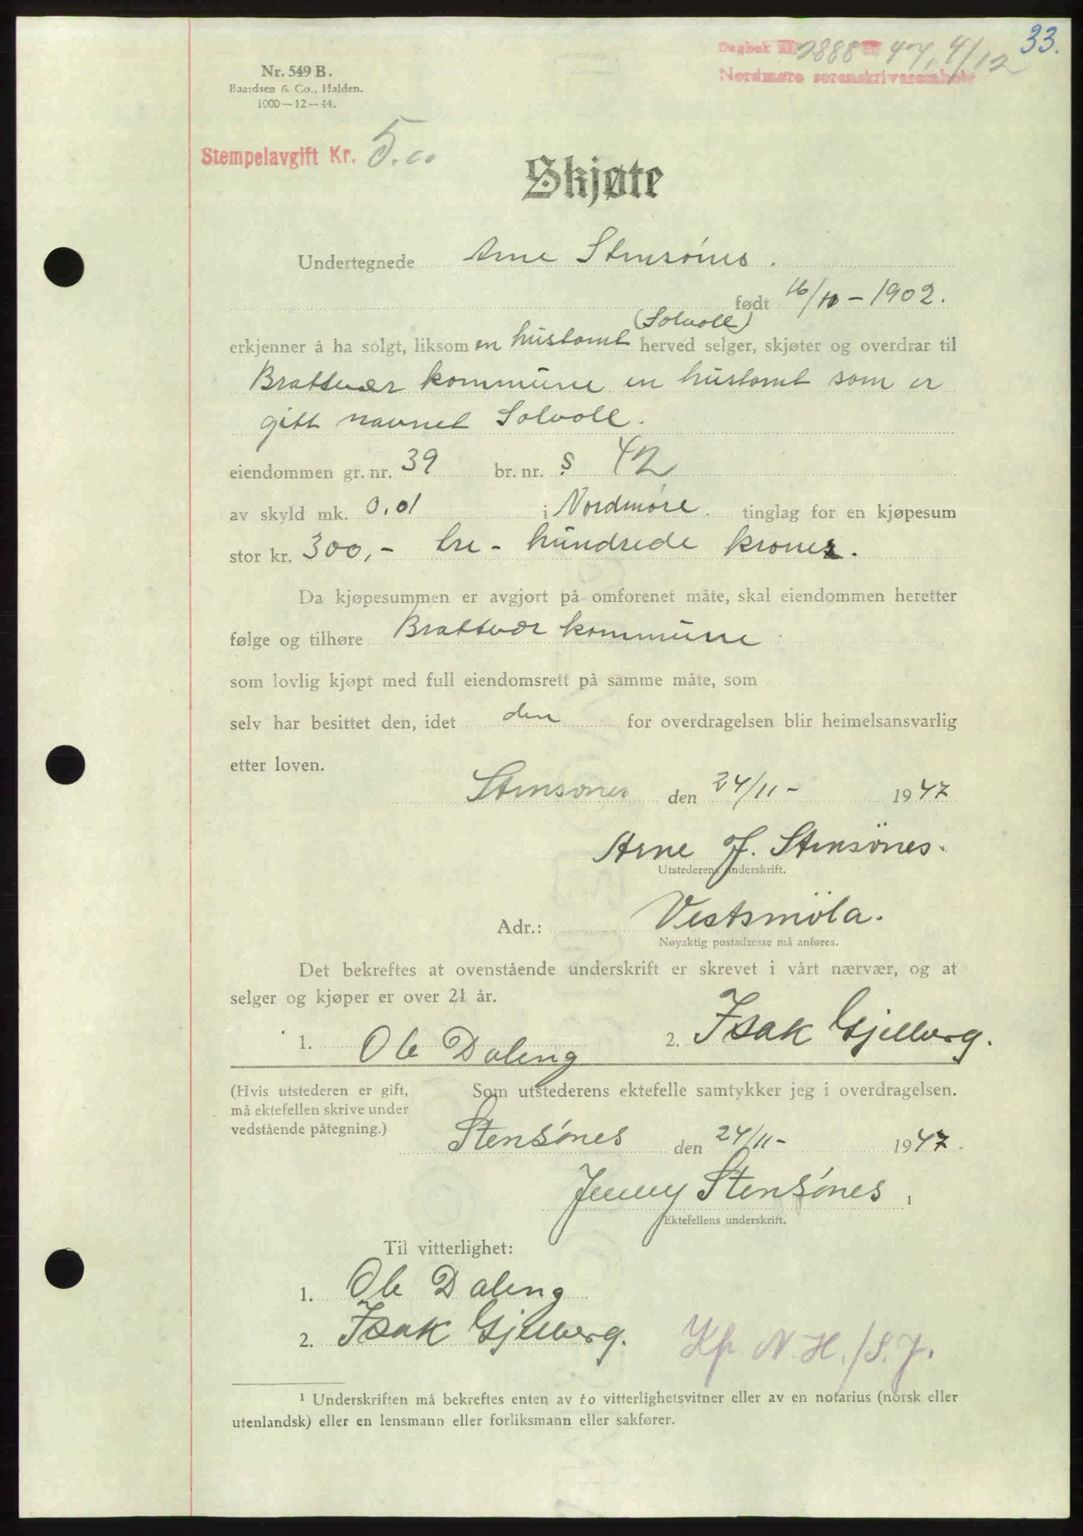 33.
Dagbok nr. 2888 47, 4/12
Nordmøre sorenskriverembete
Nr. 549 B.
Baardsen & Co., Halden.
1000—12—44.
Stempelavgift Kr. 5.00
Skjøte
Undertegnede Arne Stensønes.
født 16/10 - 1902.
(Solvoll)
erkjenner å ha solgt, liksom en hustomt herved selger, skjøter og overdrar til
Brattvær kommune en hustomt som er
gitt navnet Solvoll.
eiendommen gr. nr. 39 br. nr. 42
av skyld mk. 0.01 i Nordmøre tinglag for en kjøpesum
stor kr. 300,- tre - hundrede kroner.
Da kjøpesummen er avgjort på omforenet måte, skal eiendommen heretter
følge og tilhøre Brattvær kommune
som lovlig kjøpt med full eiendomsrett på samme måte, som
selv har besittet den, idet den for overdragelsen blir heimelsansvarlig
etter loven.
Stensønes den 24/11 - 1947
Arne J. Stensønes.
Utstederens underskrift.
Adr.: Vestsmöla.
Nøyaktig postadresse må anføres.
Det bekreftes at ovenstående underskrift er skrevet i vårt nærvær, og at
selger og kjøper er over 21 år.
1. Ole Daleng 2. Isak Gjelberg.
(Hvis utstederen er gift, Som utstederens ektefelle samtykker jeg i overdragelsen.
må ektefellen skrive under
vedstående påtegning.)
Stensønes den 24/11 - 1947.
Jenny Stensønes 1
Ektefellens underskrift.
Til vitterlighet:
1. Ole Daleng
2. Isak Gjelberg.
Kp. N.H./S.J.
1 Underskriften må bekreftes enten av to vitterlighetsvitner eller av en notarius (norsk eller
utenlandsk) eller en lensmann eller forliksmann eller sakfører.